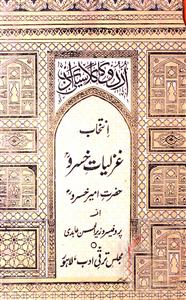 اردو کا کلاسیکی ادب
انتخاب
غزلیات خسرو
حضرت امیر خسرو
از
پروفیسر وزیر الحسن عابدی
مجلس ترقی ادب، لاہور